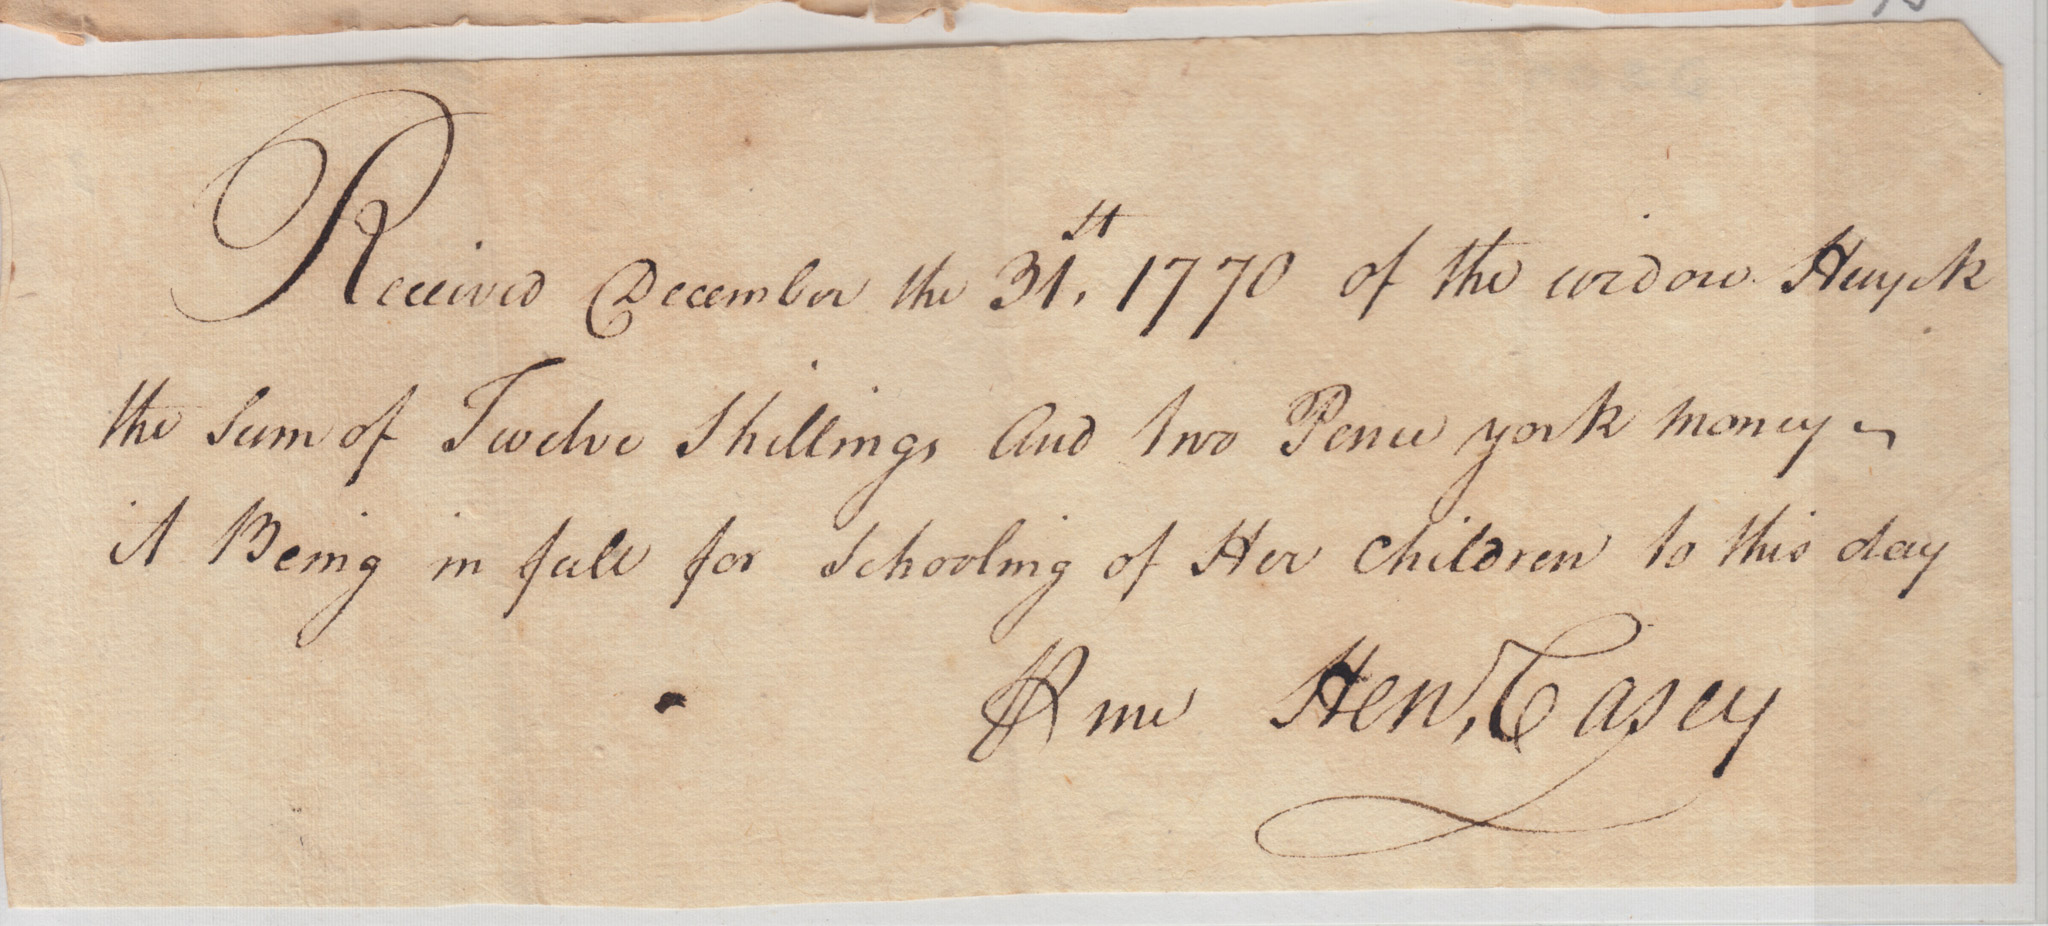 Received December the 31st, 1770 of the widow Huyck
the Sum of Twelve Shillings and two Pence york money
it Being in full for Schooling of Her children to this day
⅌ me Hen, Casey